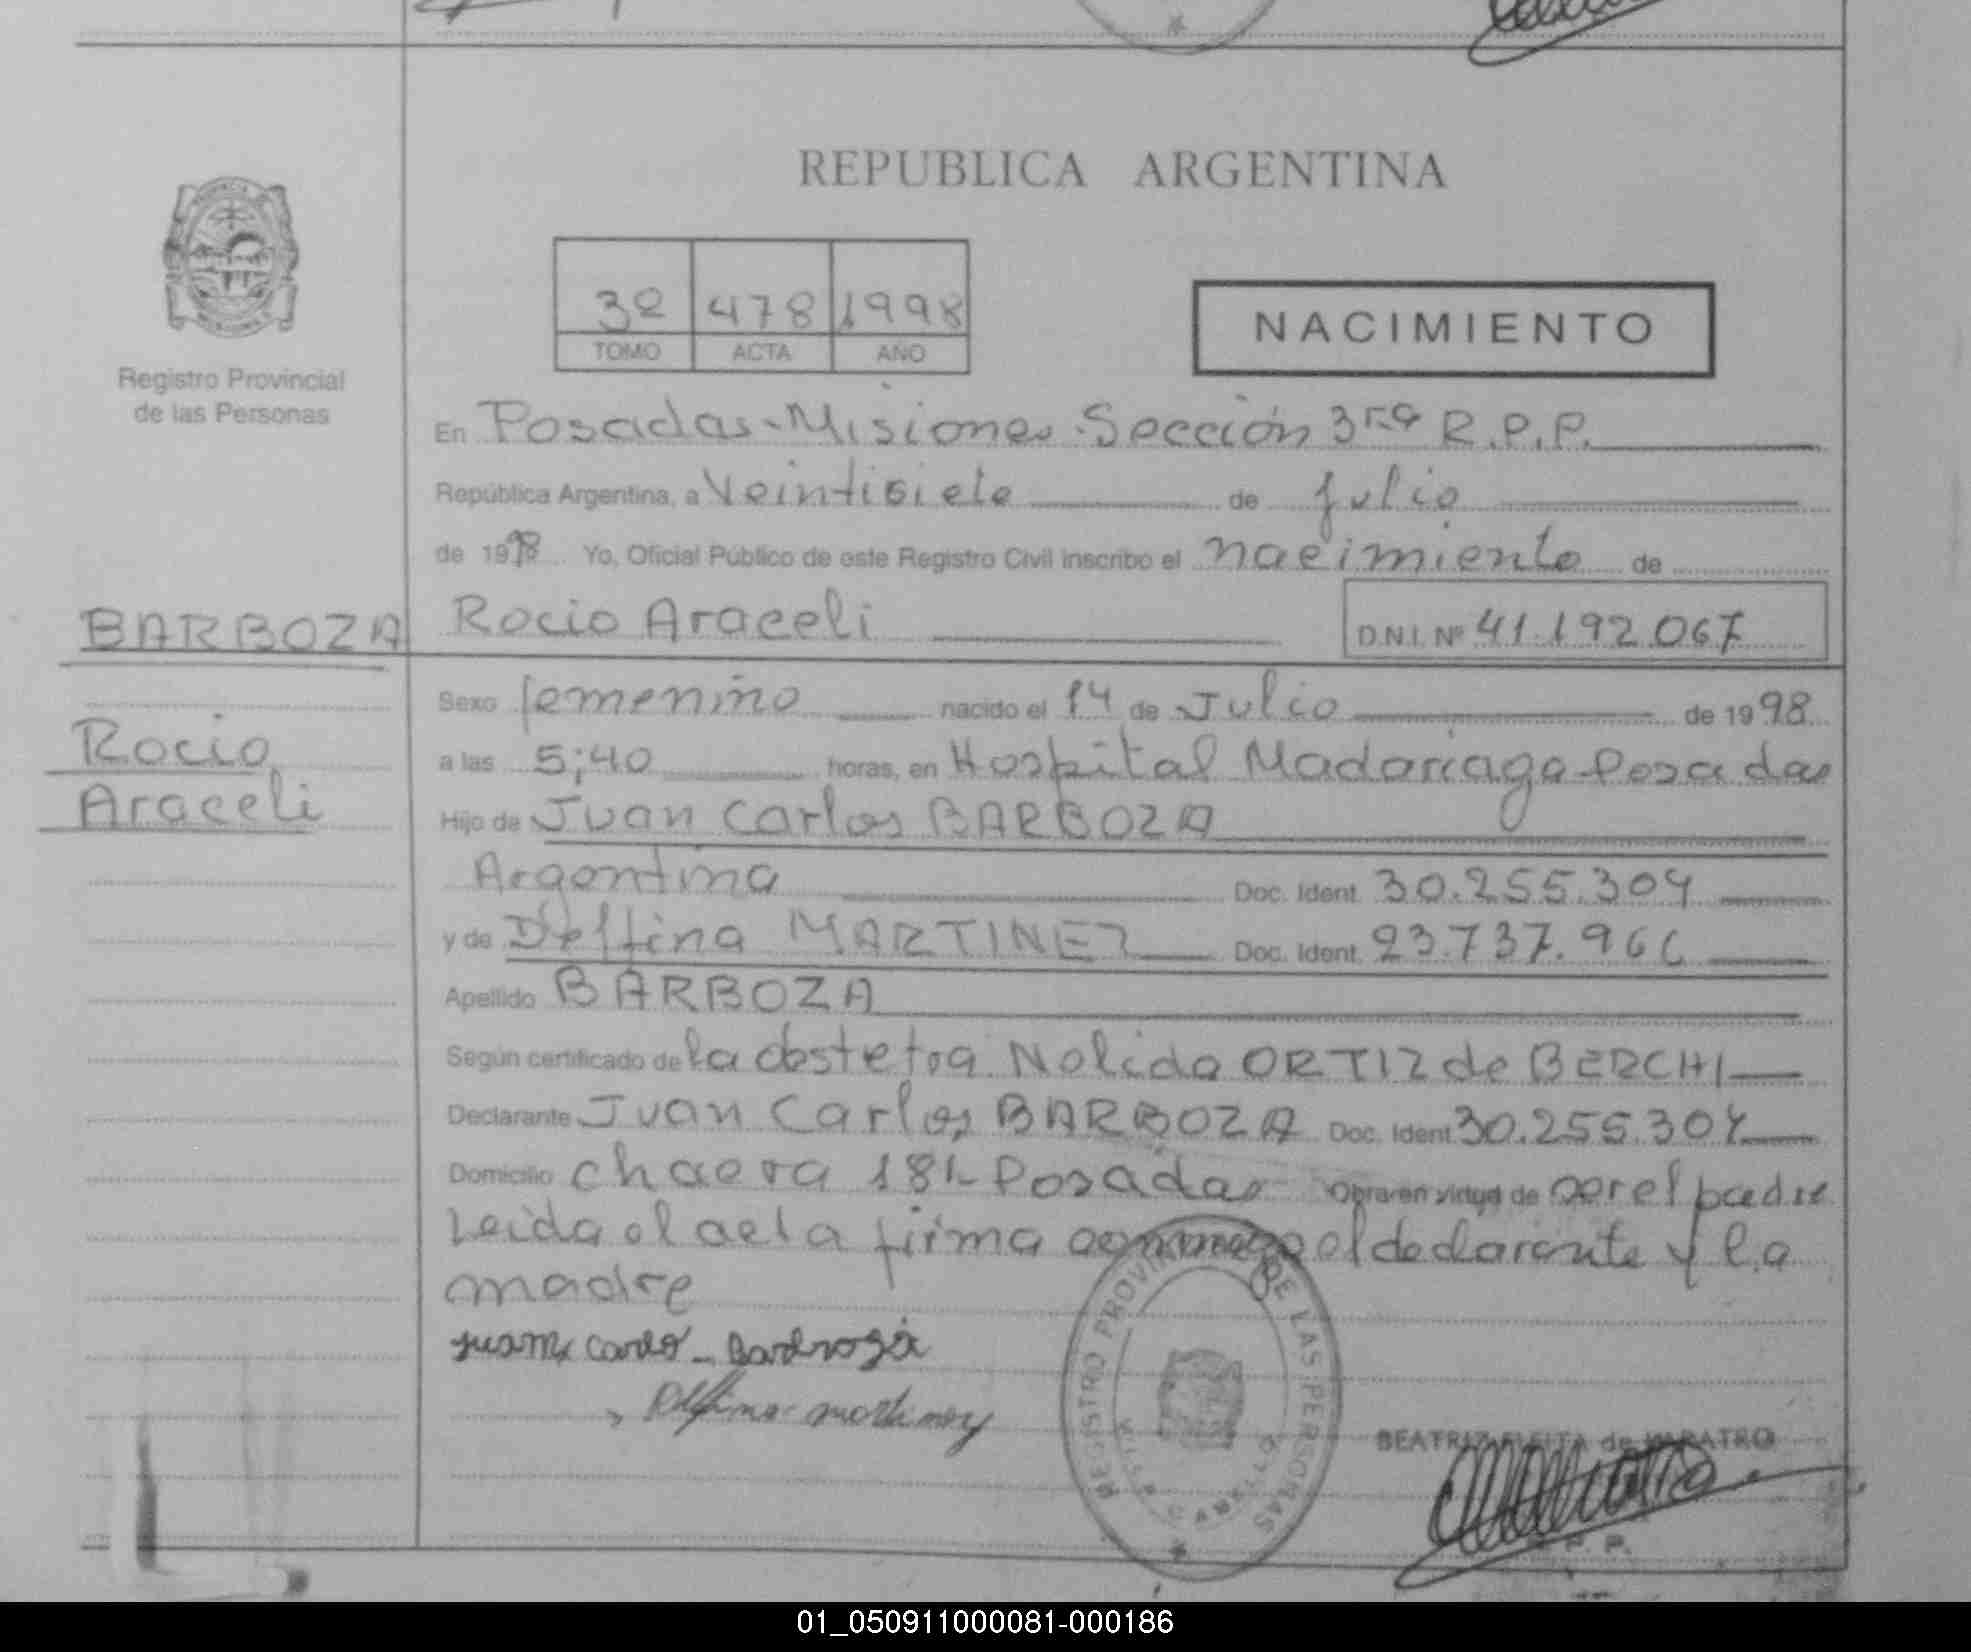 REPUBLICA ARGENTINA
32 478 1998
TOMO ACTA AÑO
NACIMIENTO
Registro Provincial
de las Personas
En Posadas-Misiones Sección 3ra R.P.P.
República Argentina, a Veintisiete de julio
de 1998 Yo, Oficial Público de este Registro Civil inscribo el nacimiento de
BARBOZA
Rocio Araceli D.N.I. Nº 41.192.067
Rocio
Araceli
Sexo femenino nacido el 14 de Julio de 1998
a las 5;40 horas, en Hospital Madariaga-Posadas
Hijo de Juan Carlos BARBOZA
Argentina Doc. Ident. 30.255.304
y de Delfina MARTINEZ Doc. Ident. 23.737.966
Apellido BARBOZA
Según certificado de la obstetra Nelida ORTIZ de BERCHI
Declarante Juan Carlos BARBOZA Doc. Ident. 30.255.304
Domicilio chacra 181-Posadas Obra en virtud de ser el padre
Leida el acta firma conmigo el declarante y la
madre
Juan Carlos Barboza
Delfina Martinez
REGISTRO PROVINCIAL DE LAS PERSONAS
BEATRIZ FLEITA de
R. P. P.
01_050911000081-000186